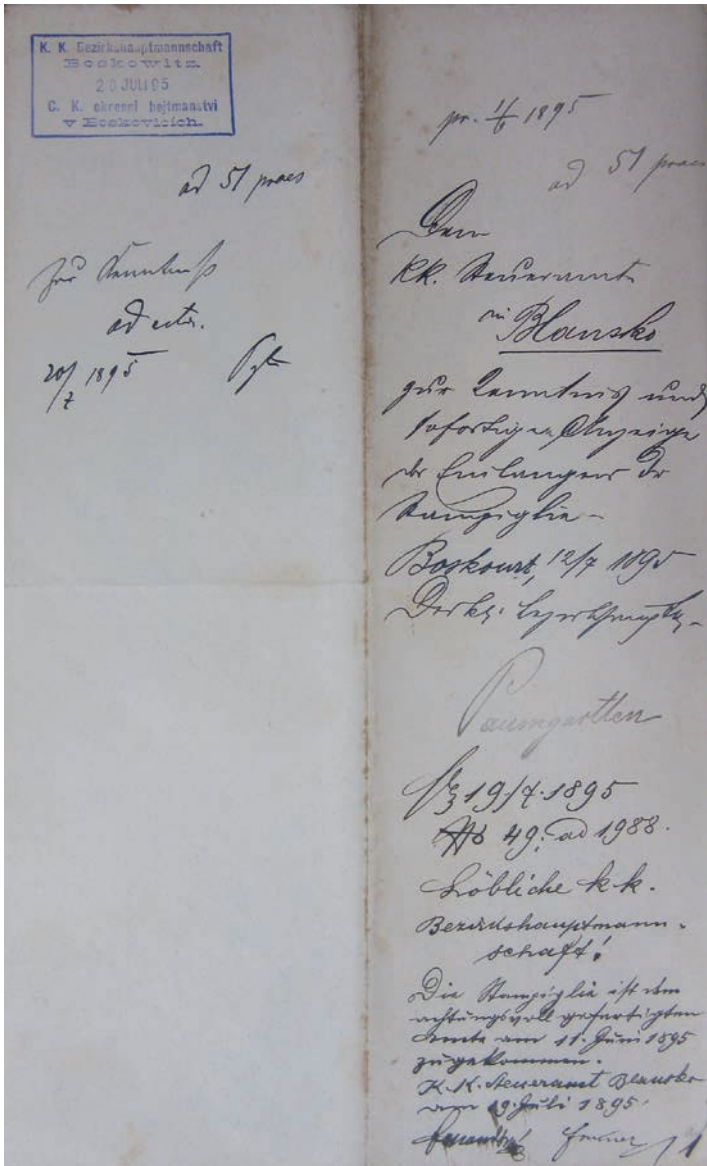 K. K. Bezirkshauptmannschaft
Boskowitz.
20 JULI 95
C. K. okresní hejtmanství
v Boskovicích.
ad 51 praes
Zur Kenntniß
ad acta.
20/7 1895
pr. 1895
ad 51 praes
Dem
k.k. Steueramte
in Blansko
zur Kenntnis und
sofortigen Anzeige
des Einlangens der
Stampiglie
12/7 1895
Der k.k. Bezirkshauptm
Paumgartten
19/7. 1895
No 49. ad 1988.
Löbliche k.k.
Bezirkshauptmann-
schaft!
Die Stampiglie ist dem
achtungsvoll gefertigten
Amte am 11. Juni 1895
zugekommen.
K.K. Steueramt Blansko
am 19. Juli 1895.